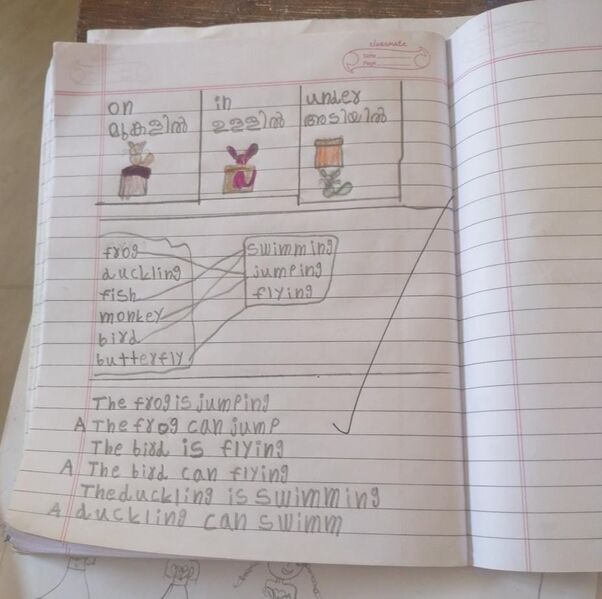 classmate
Name
Page
on in under
മുകളിൽ ഉള്ളിൽ അടിയിൽ
frog swimming
duckling jumping
fish flying
monkey
bird
butterfly
The frog is jumping
A The frog can jump
The bird is flying
A The bird can flying
The duckling is swimming
A duckling can swimm